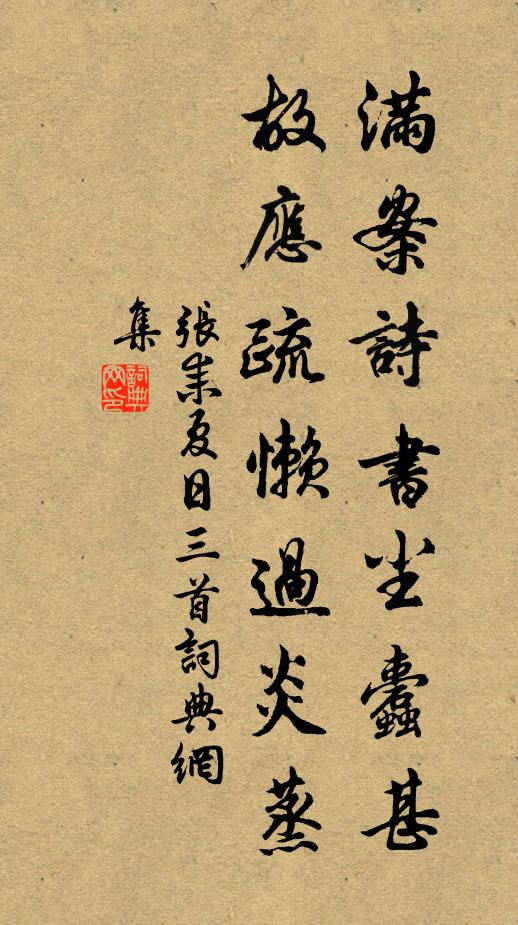 滿案詩書尘蠹甚
故應疏懒過炎蒸
張耒夏日三首詞典網
集
詞典
网印